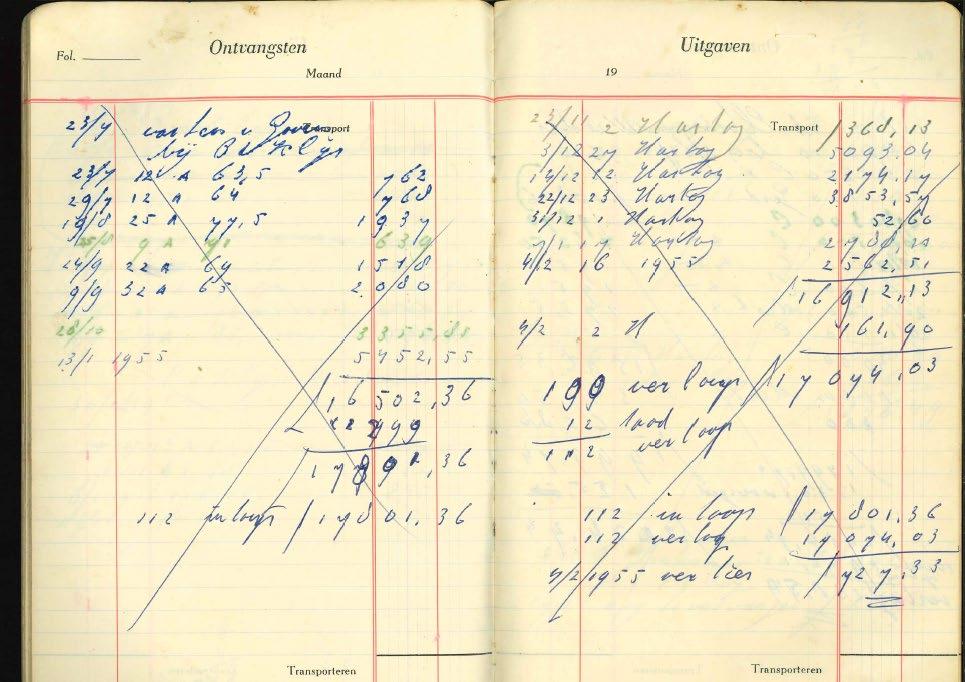 Ontvangsten
Fol.
Maand
Transport
23/7 varkens
bij
23/7 12 A 63,5 762
29/7 12 A 64 768
19/8 25 A 77,5 1937
25/8 9 A 71 639
24/9 22 A 69 1518
9/9 32 A 65 2080
28/10 3355,85
13/1 1955 5452,55
16 502,36
17801,36
112 inloop 17801,36
Transporteren
Uitgaven
19
Transport
23/11 2 Hartog 1368,13
3/12 27 Hartog 5093.04
14/12 12 Hartog 2174.17
22/12 23 Hartog 3853,57
31/12 1 Hartog 52,60
7/1 17 Hartog
4/2 16 1955 2562,51
16 912,13
4/2 2 H 161,90
17 074,03
verloop
12 dood
112 verloop
112 inloop 17 801.36
112 verloop 17 074,03
4/2 1955 verlies 727.33
Transporteren